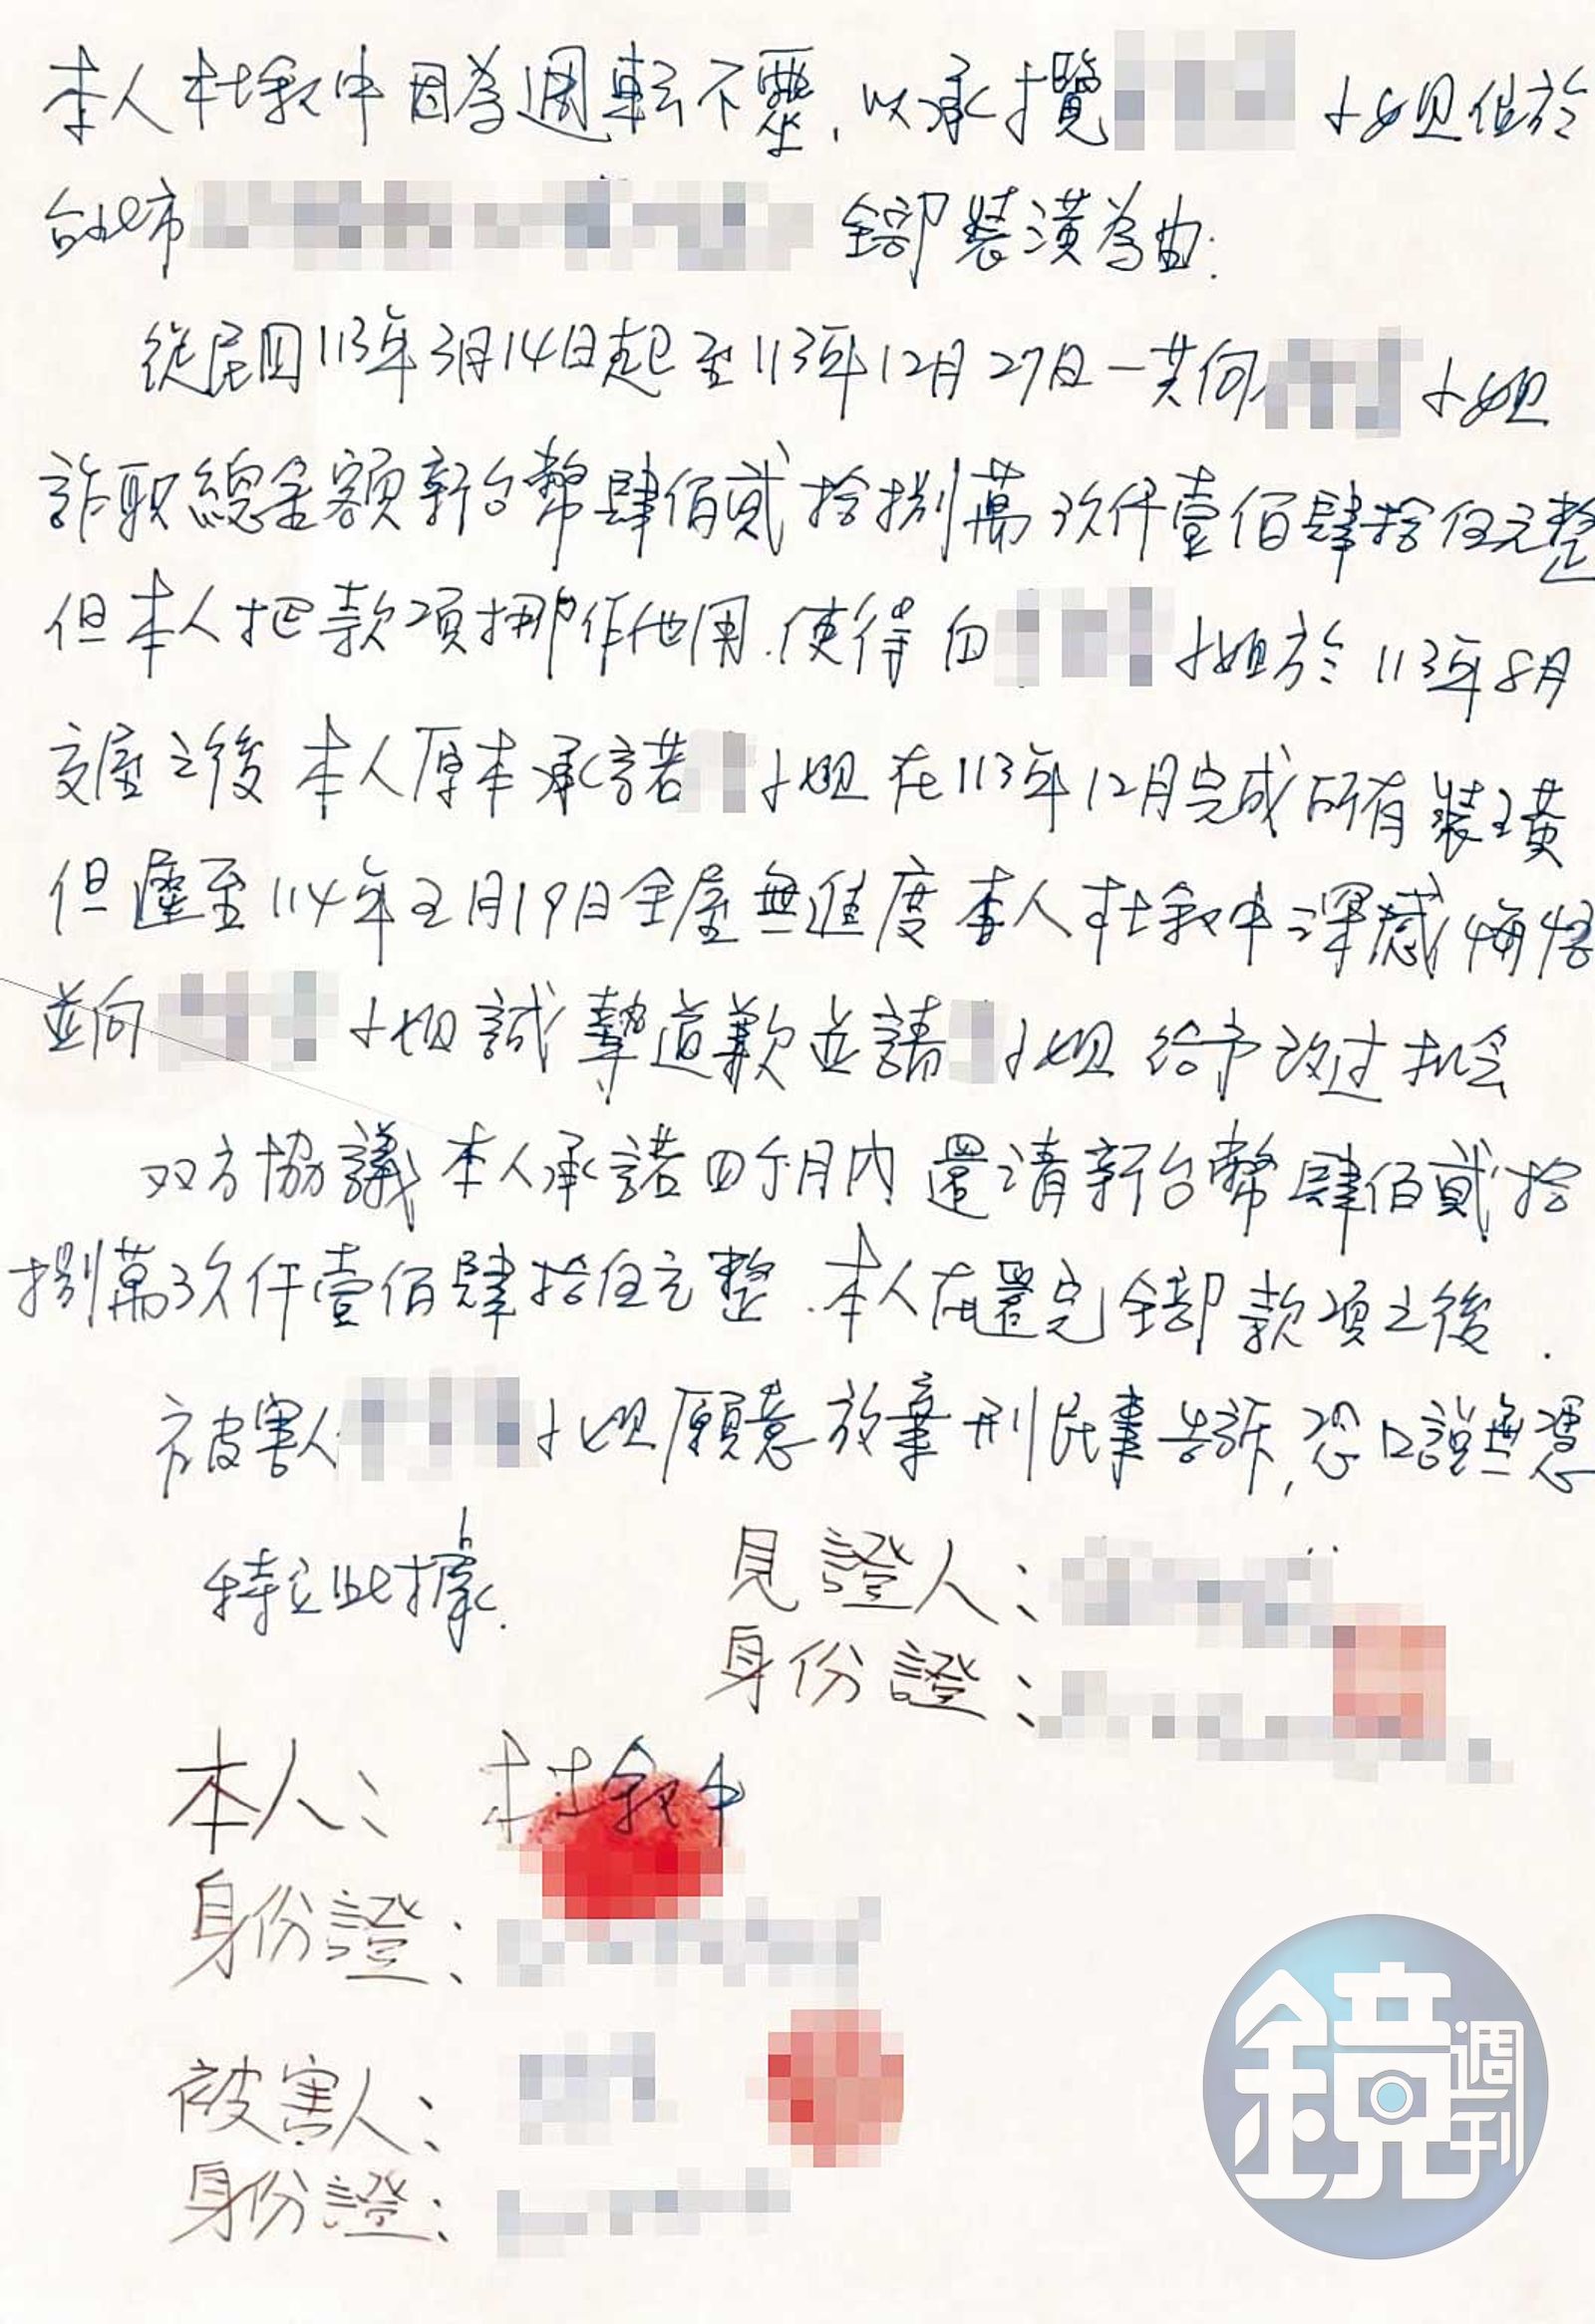 本人杜叙中因為週転不靈，以承攬 小姐位於
台北市 全部裝潢為由.
從民國113年3月14日起至113年12月27日一共向 小姐
詐取總金額新台幣肆佰貳拾捌萬玖仟壹佰肆拾伍元整
但本人把款項挪作他用.使得 小姐於113年8月
交屋之後 本人原本承諾 小姐 在113年12月完成所有裝璜
但遲至114年2月19日全屋無進度 本人杜叙中深感悔悟
並向 小姐誠摯道歉並請 小姐 給予改过机会
双方協議 本人承諾四个月內 還清新台幣肆佰貳拾
捌萬玖仟壹佰肆拾伍元整.本人在還完全部款項之後.
被害人 小姐願意放棄刑民事告訴，恐口說無憑
特立此據.
見證人：
身份證：
本人： 杜叙中
身份證：
被害人：
身份證：
鏡週刊